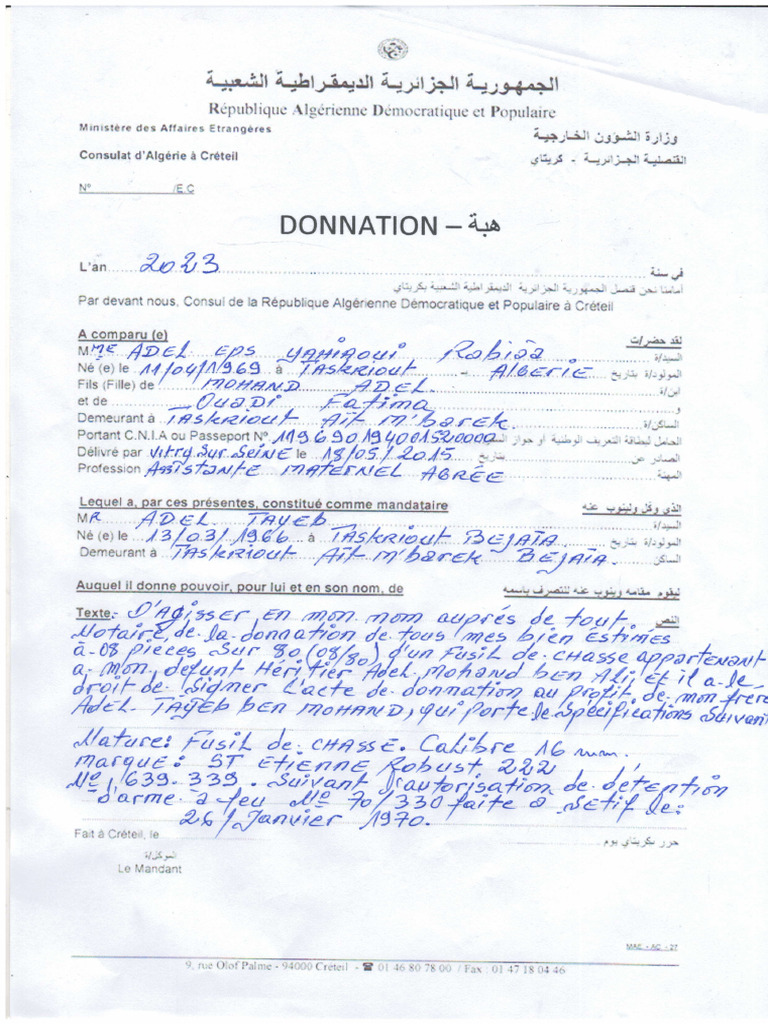 الجمهورية الجزائرية الديمقراطية الشعبية
République Algérienne Démocratique et Populaire
Ministère des Affaires Etrangères وزارة الشؤون الخارجية
Consulat d'Algérie à Créteil القنصلية الجزائرية - كريتاي
N° /E.C
DONNATION – هبة
L'an 2023 في سنة
أمامنا نحن قنصل الجمهورية الجزائرية الديمقراطية الشعبية بكريتاي
Par devant nous, Consul de la République Algérienne Démocratique et Populaire à Créteil
A comparu (e) لقد حضر/ت
Mme ADEL EPS YAHIAOUI Rabiâa السيد/ة
Né (e) le 11/04/1969 à TASKRIOUT - ALGERIE المولود/ة بتاريخ
Fils (Fille) de MOHAND ADEL ابن/ة
et de OUADI Fatima و
Demeurant à TASKRIOUT AÏT M'barek. الساكن/ة
Portant C.N.I.A ou Passeport N° 119690194001520000 الحامل لبطاقة التعريف الوطنية او جواز السفر
Délivré par Vitry Sur SEINE le 18/05/2015 بتاريخ الصادر عن
Profession ASSISTANTE MATERNEL AGRÉE المهنة
Lequel a, par ces présentes, constitué comme mandataire الذي وكل ولينوب عنه
MR ADEL TAYEB السيد/ة
Né (e) le 13/03/1966 à TASKRIOUT BEJAÏA. المولود/ة بتاريخ
Demeurant à TASKRIOUT AÏT M'barek BEJAÏA. الساكن
Auquel il donne pouvoir, pour lui et en son nom, de ليقوم مقامه وينوب عنه للتصرف باسمه
Texte: D'Agisser EN mon nom auprés de tout النص
Notaire, de la donnation de tous mes bien Estimes
à 08 pieces Sur 80 (08/80) d'un Fusil de CHASSE appartenant
a mon defunt Héritier Adel Mohand ben Ali, et il a le
droit de Signer L'acte de donnation au profit de mon frère
ADEL TAYEB BEN MOHAND, qui porte le Spécifications Suivant
Nature: Fusil de CHASSE. Calibre 16 mm.
marque: ST ETIENNE Robust 222
No, 639.339. Suivant l'autorisation de détention
d'arme a feu No 70/330 faite a SETIF le:
26/Janvier 1970.
Fait à Créteil, le حرر بكريتاي يوم
الموكل/ة
Le Mandant
MAE - AC - 27
9, rue Olof Palme - 94000 Créteil - ☎ 01 46 80 78 00 / Fax : 01 47 18 04 46